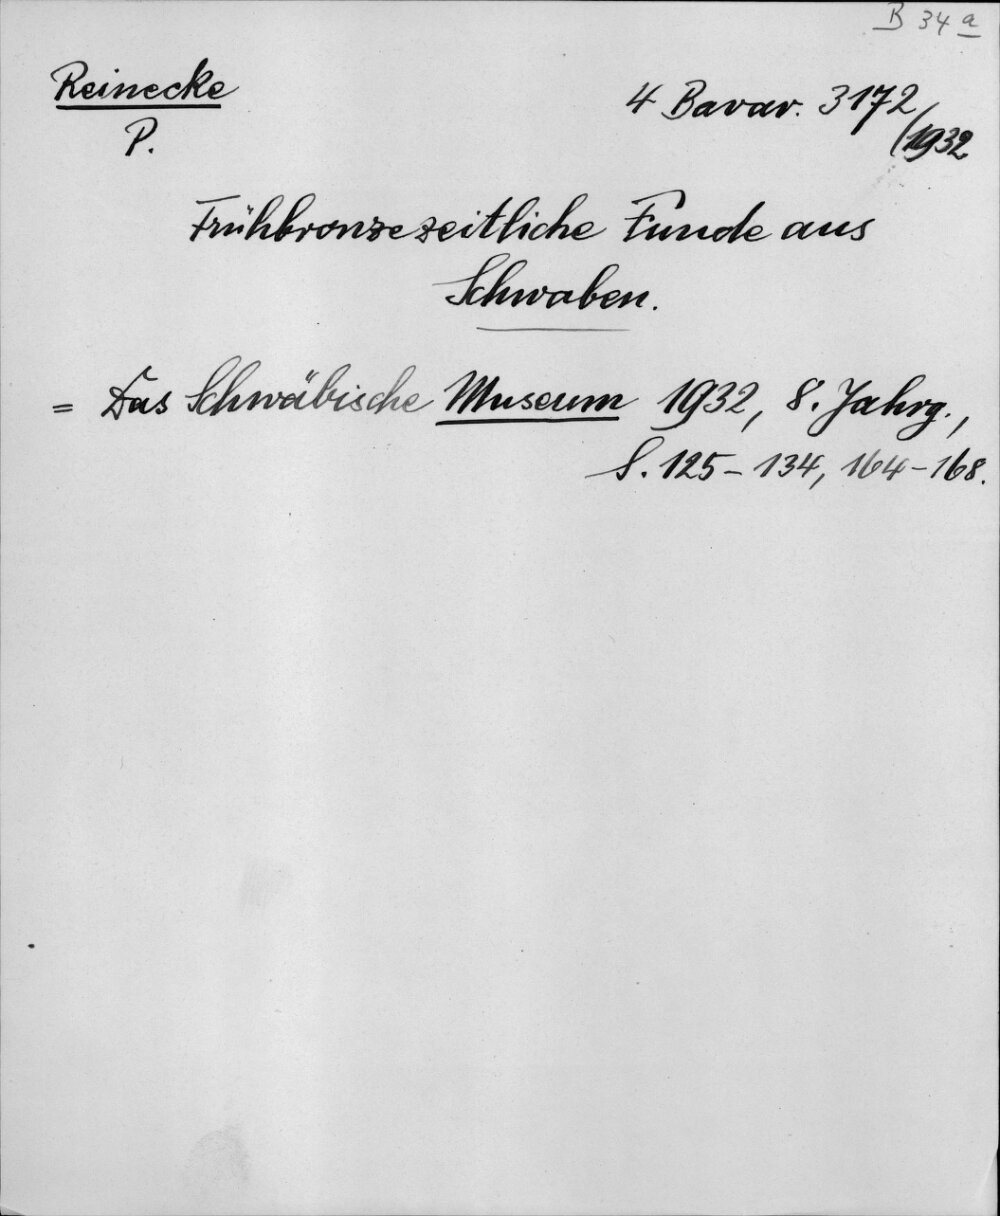 B 34 a
Reinecke
P.
4 Bavar. 3172
/1932
Frühbronzezeitliche Funde aus
Schwaben.
= Das Schwäbische Museum 1932, 8. Jahrg.,
S. 125-134, 164-168.